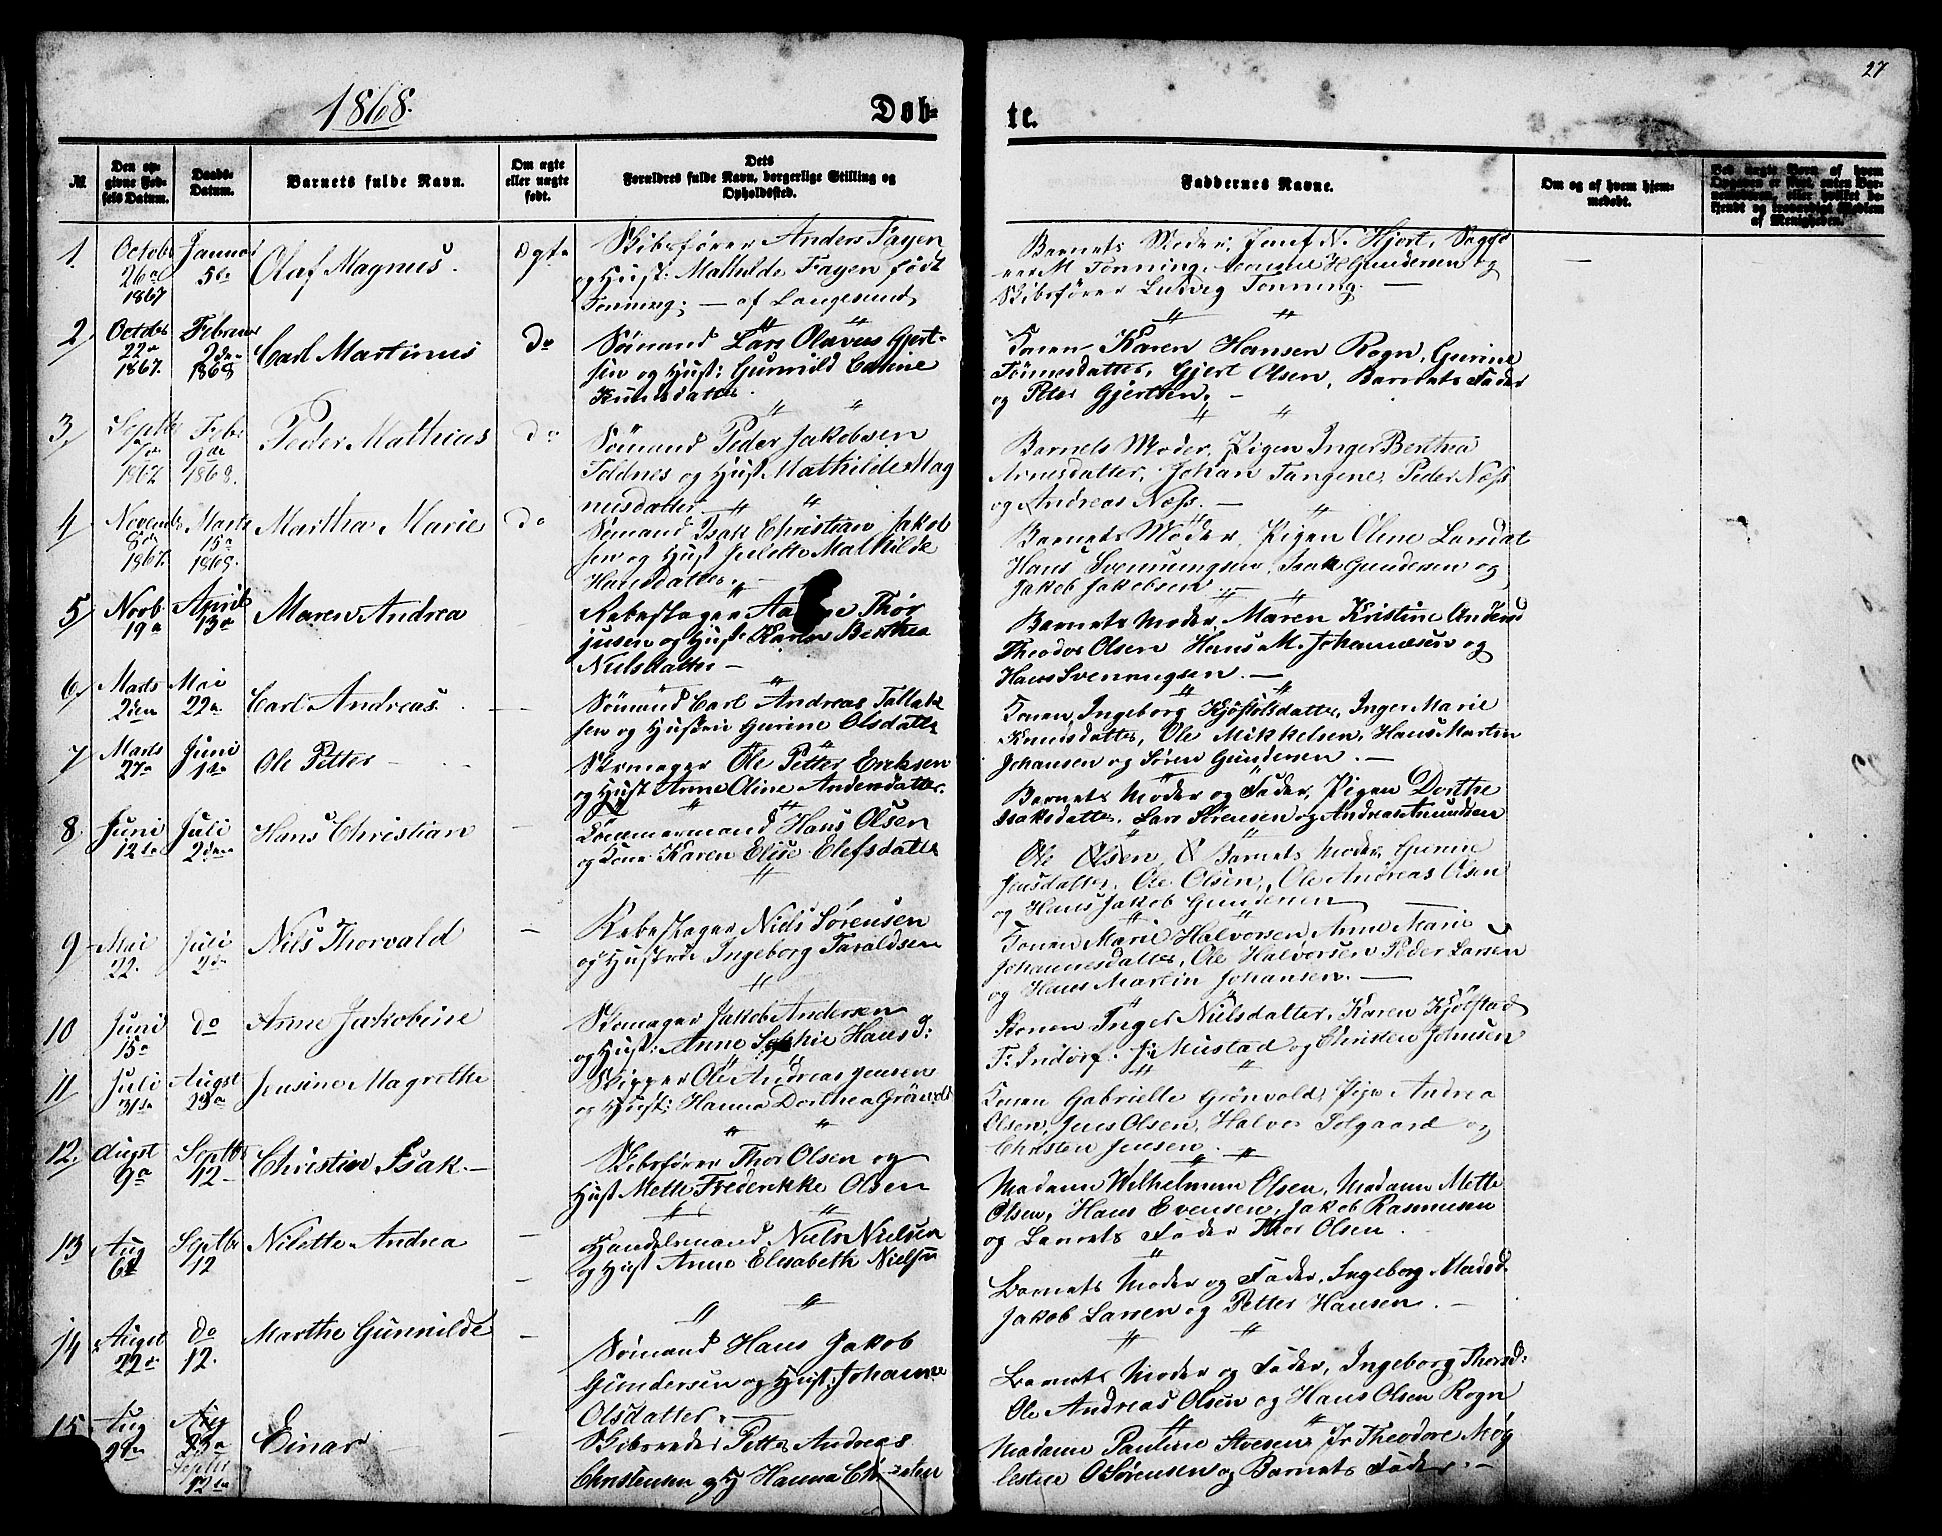 27
1868.
Døb=
te.
№
Den op-
givne Fød-
sels Datum.
Daabs-
Datum.
Barnets fulde Navn.
Om ægte
eller uægte
født.
Dets
Forældres fulde Navn, borgerlige Stilling og
Opholdssted.
Faddernes Navne.
Om og af hvem hjem-
medøbt.
1.
Octobr
26de
1867
Januar
5te
Olaf Magnus.
Ægte
Skibsfører Anders Fayen
og Hust: Mathilde Fayen født
Tonning; — af Langesund
Barnets Moder, N. Hjort,
M Tonning, H Gundersen og
Skibsfører Ludvig Tonning. —
2
Octobr
22de
1867.
Februar
2den
1868
Carl Martinus
do
Sömand Lars Olavus Gjert-
sen og Hust: Gunnild Cathrine
Knudsdatter.
Konen Karen Hansen Rogn, Gurine
Tönnesdatter, Gjert Olsen, Barnets Fader
og Peter Gjertsen. —
3
Septbr
1867
Febr
9de
1868.
Peder Mathias
do
Sömand Peder Jakobsen
Foldnes og Hust Mathilde Mag
nusdatter.
Barnets Moder, Pigen Inger Berthea
Arnesdatter, Johan Tangene, Peder Næss
og Andreas Næss. —
4
Novembr
8de
1867.
Marts
15de
1868.
Martha Marie
do
Sömand Isak Christian Jakob
sen og Hust Julette Mathilde
Hansdatter. —
Barnets Moder, Pigen Olene Larsdat
Hans Svenningsen, Isak Gundersen og
Jakob Jakobsen —
5
Novb
19de
April
13de
Maren Andrea
Rebeslager Thor
jusen og Hust Karen Berthea
Nielsdatter —
Barnets Moder, Maren Kristine Andersd
Theodor Olsen Hans M. Johannesen og
Hans Svenningsen. —
6
Marts
2den
Mai
22de
Carl Andreas.
Sömand Carl Andreas Tallak
sen og Hustru Gurine Olsdatter
Konen Ingeborg Kjøstolsdatter, Inger Marie
Knudsdatter, Ole Mikkelsen, Hans Martin
Johansen og Søren Gundersen. —
7
Marts
27de
Juni
1ste
Ole Petter
Skomager Ole Petter Eriksen
og Hust Anne Oline Andersdatter.
Barnets Moder og Fader, Pigen Dorthe
Isaksdatter, Lars Sörensen og Andreas Amundsen
8
Juni
12te
Juli
2den
Hans Christian
Tømmermand Hans Olsen
og Kone Karen Elise Elefsdatter
Ole Olsen, Barnets Moder, Gunne
Jensdatter, Ole Olsen, Ole Andreas Olsen
og Hans Jakob Gundersen
9
Mai
22.
Juli
2de
Nils Thorvald
Rebeslager Niels Sørensen
og Hustru Ingeborg Taraldsen
Konen Marie Halvorsen Anne Marie
Johannesdatter, Ole Halvorsen Peder Larsen
og Hans Martin Johansen. —
10
Juni
15de
do
Anne Jakobine
Skomager Jakob Andersen
og Hust: Anne Sophie Hans D:
Konen Inger Nielsdatter, Karen Kjølstad
T. Indorf. Mustad og Christen Johnsen
11
Juli
31te
Augst
23de
Jensine Magrethe
Skipper Ole Andreas Jensen
og Hust: Hanna Dorthea Grönvold
Konen Gabrielle Grönvold, Pige Andrea
Olsen, Jens Olsen, Halvor Solgaard og
Christen Jensen.
12.
Augst
9de
Septbr
12
Christian Isak. —
Skibsfører Thor Olsen og
Hust Mette Frederikke Olsen
Madame Wilhelmine Olsen, Madame Mette
Olsen, Hans Evensen, Jakob Rasmusen
og Barnets Fader Thor Olsen.
13
Aug
6te
Septbr
12
Nilette Andrea
Handelsmand Niels Nielsen
og Hust Anne Elisabeth Nielsen
Barnets Moder og Fader, Ingeborg Madsd.
Jakob Larsen og Petter Hansen. —
14
Augst
22de
do
12.
Marthe Gunnilde
Sömand Hans Jakob
Gundersen og Hust: Johanne
Olsdatter. —
Barnets Moder og Fader, Ingeborg Thorsd:
Ole Andreas Olsen og Hans Olsen Rogn
15
Aug
Aug
23de
Septbr
12te
Einar
Skibsreder Petter Andreas
Christensen og H Hanna
Madame Pauline Jr Theodore Møg
lestue O Sørensen og Barnets Fader. —